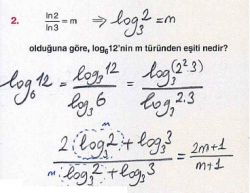 2. ln2/ln3 = m ⇒ log₃2 = m
olduğuna göre, log₆12'nin m türünden eşiti nedir?
log₆12 = log₃12/log₃6 = log₃(2²·3)/log₃2·3
2·log₃2 + log₃3/log₃2 + log₃3 = 2m+1/m+1
m
m